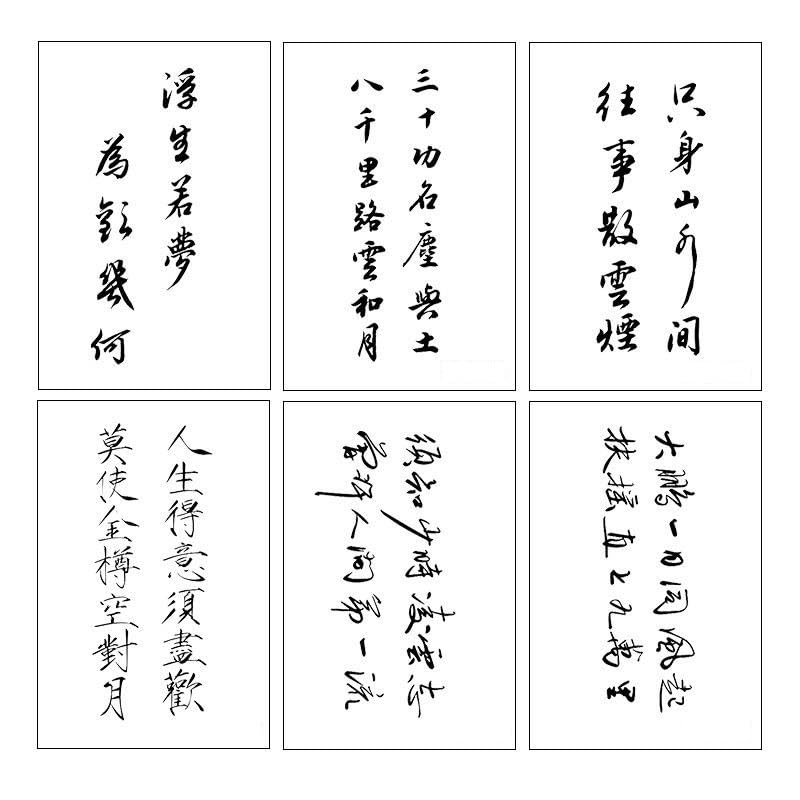 浮生若夢
為歡幾何
三十功名塵與土
八千里路雲和月
只身山水间
往事散雲煙
人生得意須盡歡
莫使金樽空對月
須知少時凌雲志
曾許人間第一流
大鵬一日同風起
扶搖直上九萬里